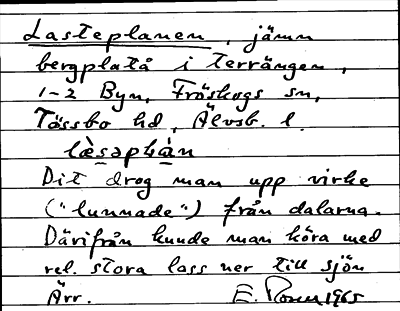 Lasteplanen, jämn
bergplatå i terrängen,
1-2 Byn, Fröskogs sn,
Tössbo hd, Älvsb. l.
Dit drog man upp virke
("lunnade") från dalarna.
Därifrån kunde man köra med
rel. stora lass ner till sjön
Ärr. E. Rosen 1965